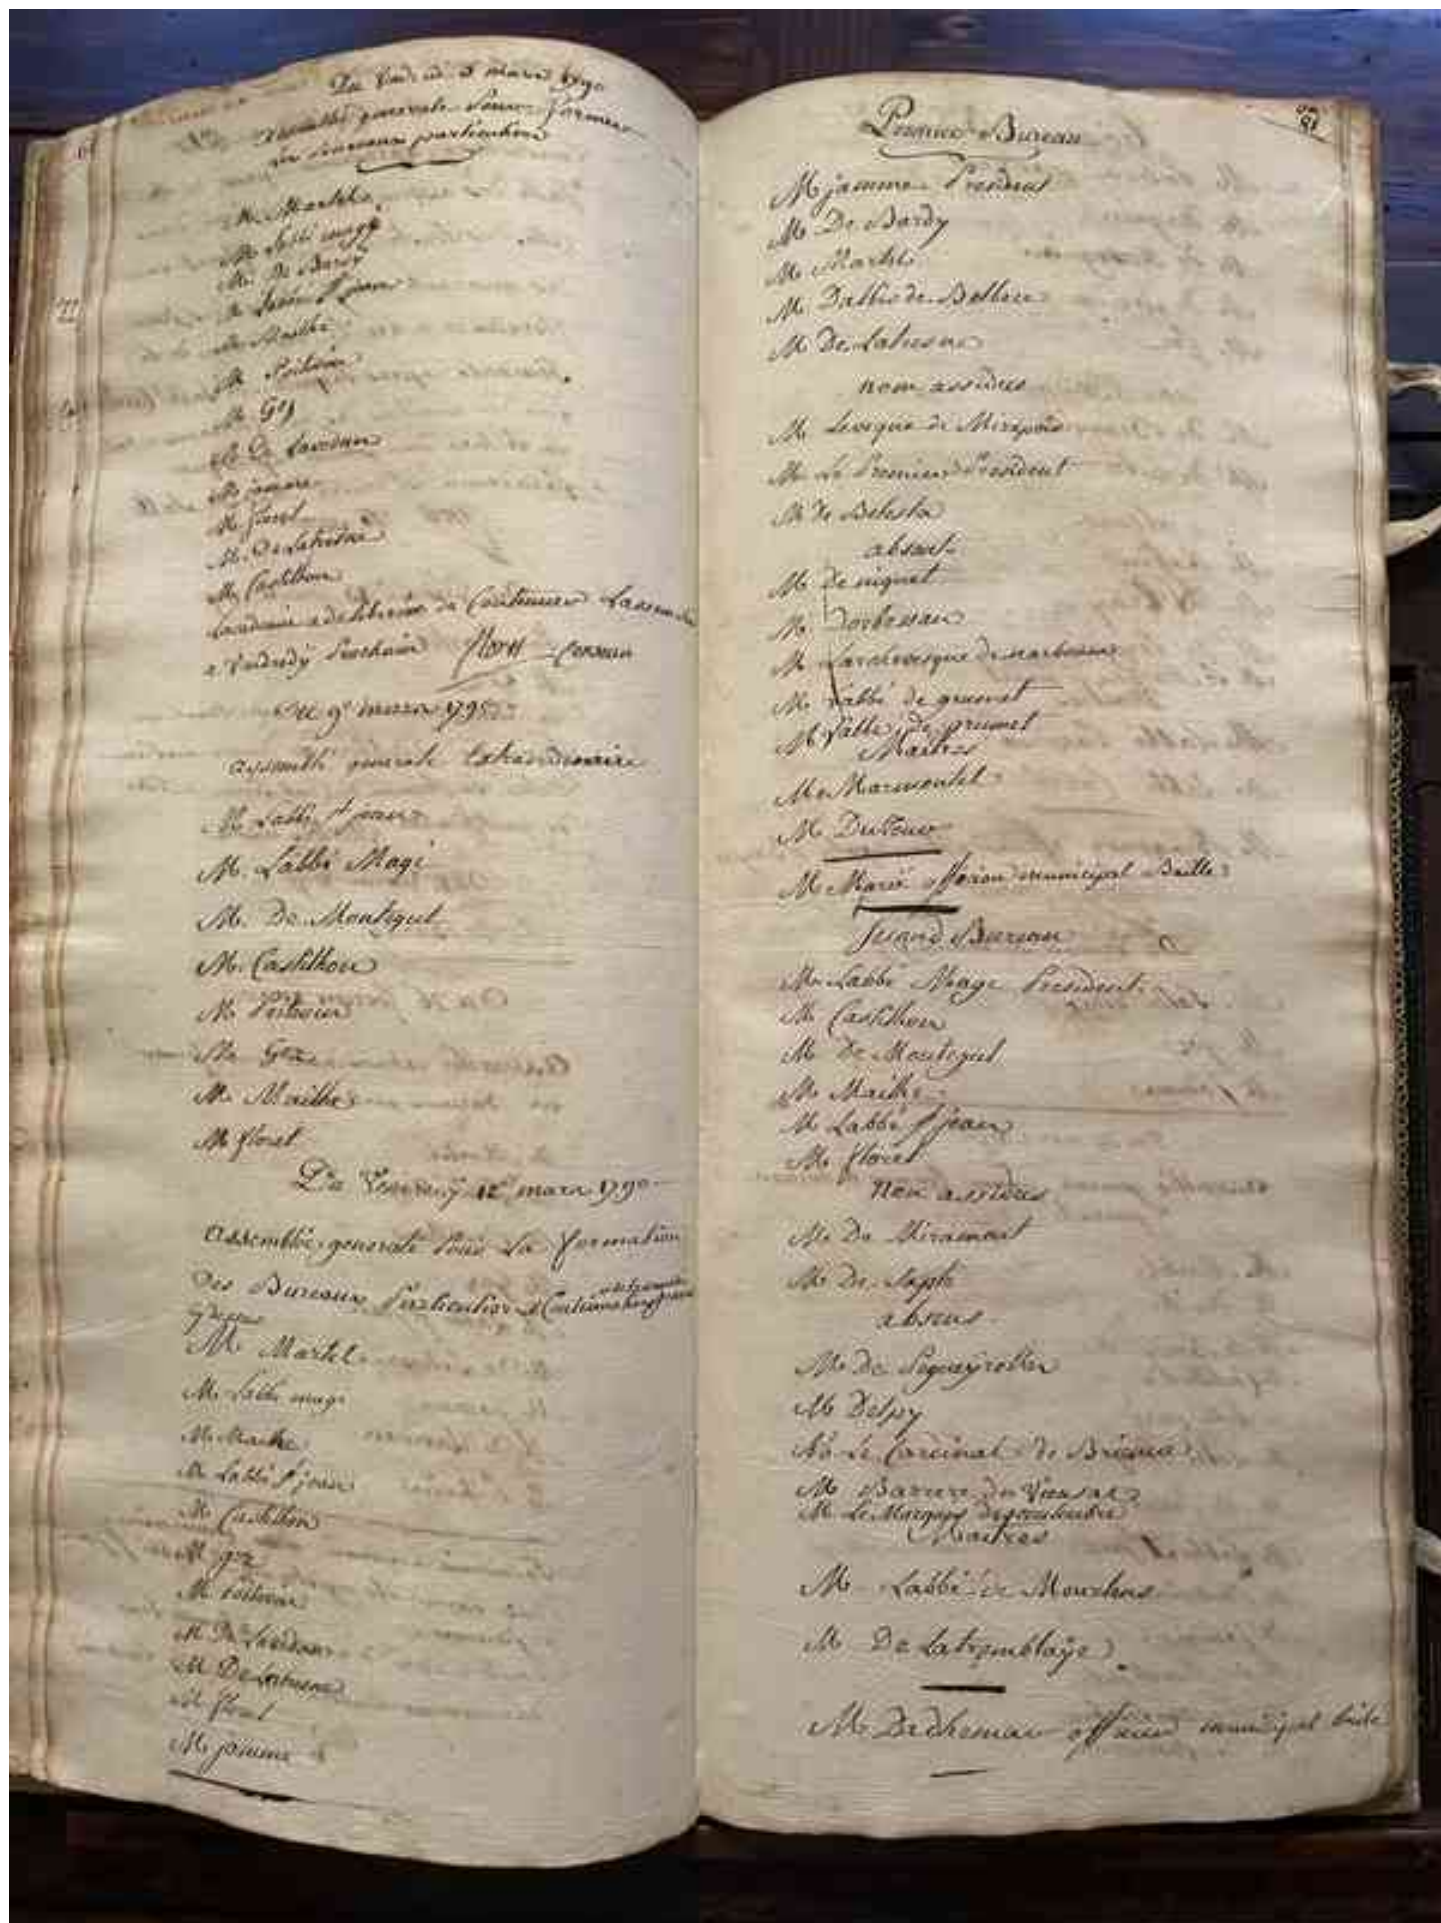 Du Vendredi 5 mars 1790
Assemblée generale Pour former
les Bureaux particuliers
M. Martel
M. Labbé magi
M. De Bardy
M. Labbé St jean
M. Mailhe
M. Poitevin
M. Gez
M. De Lavedan
M. jamme
M. floret
M. De Latresne
M. Castilhon
Lacademie a deliberé de Continuer Lassemblée
a Vendredy Prochain floret censeur
Du 9e mars 1790
assemblée generale Extraordinaire
M. Labbé St jean
M. Labbé Magi
M. De Montegut
M. Castilhon
M. Poitevin
M. Gez
M. Mailhe
M. floret
Du Vendredy 12e mars 1790
Assemblée generale Pour La formation
Des Bureaux Particuliers
M. Martel
M. Labbé magi
M. Mailhe
M. Labbé St jean
M. Castilhon
M. gez
M. Poitevin
M. De Lavedan
M. De Latresne
M. floret
M. jamme
81
Premier Bureau
M. jamme President
M. De Bardy
M. Martel
M. De Latresne
non assidus
M. Leveque de Mirepoix
M. Le Premier President
M. de Belesta
absent
M. De niquet
M. Dorbessan
M. Larchevesque de narbonne
M. Labbé de grumet
M. Labbé de grumet
Maitres
M. Marmontel
M. Dutour
M. officier municipal Baille
Second Bureau
M. Labbé Magi President
M. Castilhon
M. De Montegut
M. Mailhe
M. Labbé St jean
M. floret
Non assidus
M. De Miramont
M. De Sapte
absens
M. De Segueyrolles
M. Delpy
M. Le Cardinal de Brienne
M. Barrere de Vieusac
M. Le Marquis
Maitres
M. Labbé de
M. De Latremblaÿe
M. officier municipal baile